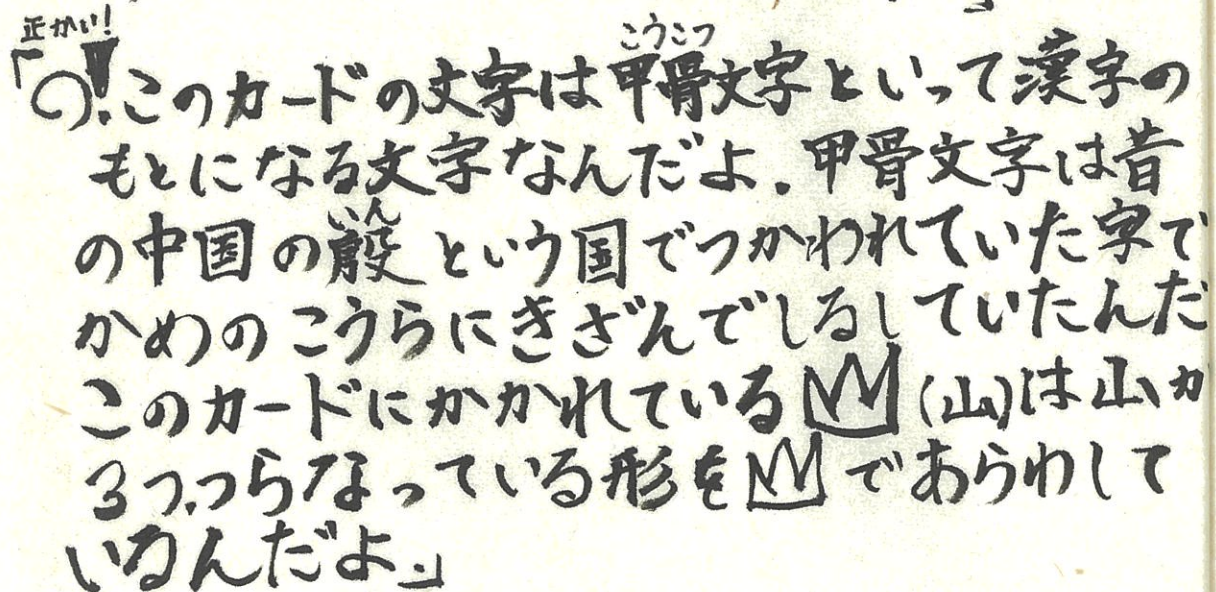 正かい!
「〇!このカードの文字は甲骨文字といって漢字の
こうこつ
もとになる文字なんだよ.甲骨文字は昔
いん
の中国の殷という国でつかわれていた字で
かめのこうらにきざんでしるしていたんだ
このカードにかかれている(山)は山が
3つ,つらなっている形をであらわして
いるんだよ.」